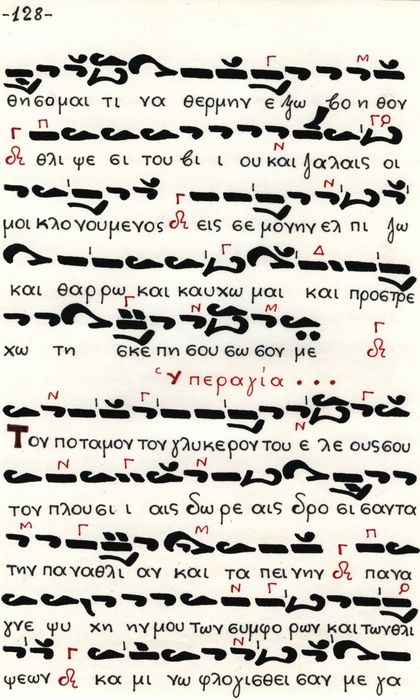 -128-
θησομαι τι να θερμην ε γω βο η θον
θλι ψε σι του βι ι ου και ζαλαις οι
μοι κλο νου με νος εις σε μο νην ελ πι ζω
και θαρ ρω και καυχω μαι και προστρε
χω τη σκε πη σου σω σον με
Ὑπεραγία...
Τον ποταμον τον γλυκερον του ε λε ους σου
τον πλου σι ι αις δω ρε αις δρο σι σαντα
την παναθλι αν και τα πει νην πανα
γνε ψυ χη ην μου των συμφο ρων και των θλι
ψεων κα μι νω φλογισθει σαν με γα